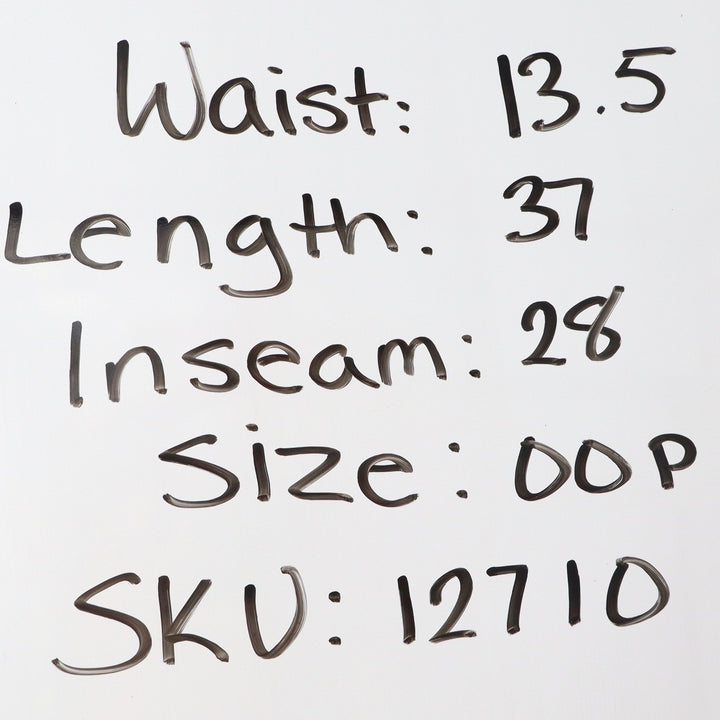 Waist: 13.5
Length: 37
Inseam: 28
Size: 00P
SKU: 12710